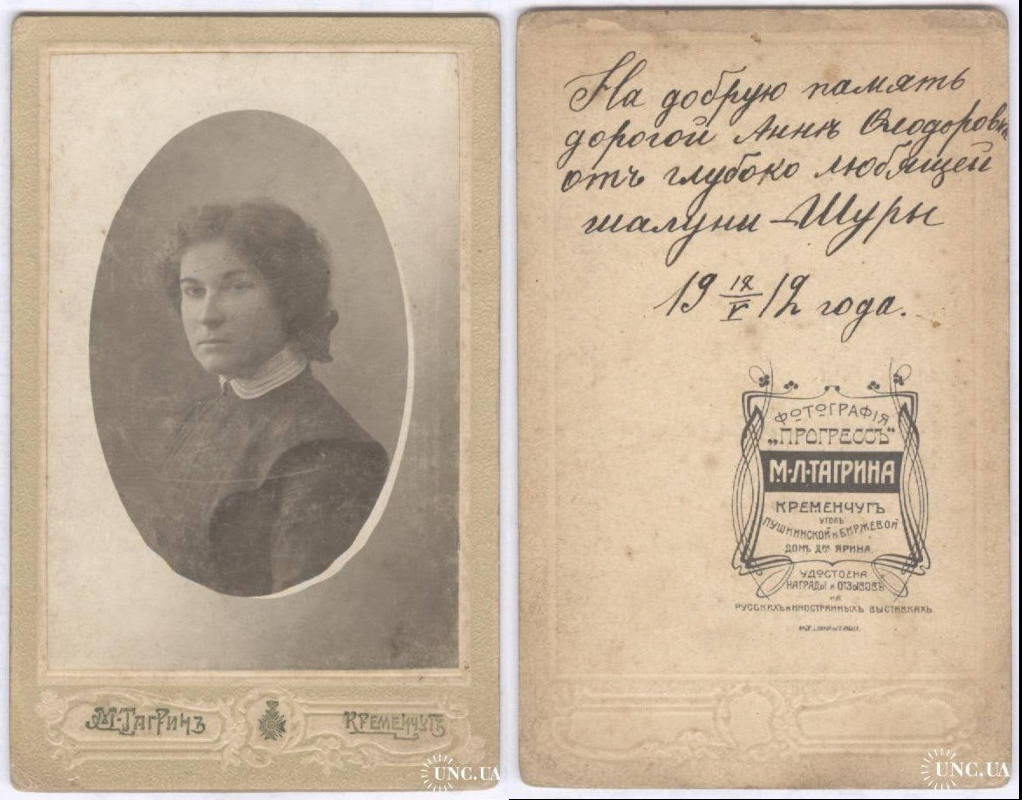 М·ТАГРИНЪ
КРЕМЕНЧУГЪ
UNC.UA
На добрую память
дорогой Аннѣ Ѳеодоровнѣ
отъ глубоко любящей
шалуни – Шуры
19 IX/V 12 года.
ФОТОГРАФІЯ
„ПРОГРЕССЪ"
М·Л·ТАГРИНА
КРЕМЕНЧУГЪ
УГОЛЪ
ПУШКИНСКОЙ И БИРЖЕВОЙ
ДОМЪ Дра ЯРИНА.
УДОСТОЕНА
НАГРАДЫ И ОТЗЫВОВЪ
НА
РУССКИХЪ И ИНОСТРАННЫХЪ ВЫСТАВКАХЪ.
UNC.UA